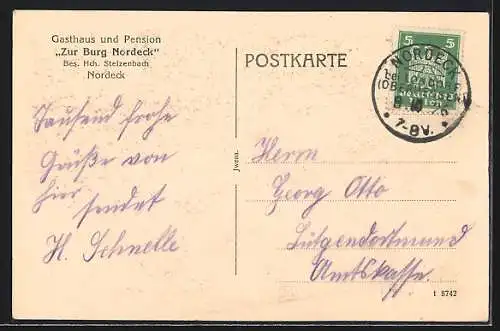 Gasthaus und Pension
„Zur Burg Nordeck“
Bes. Hch. Stelzenbach
Nordeck
POSTKARTE
5 5
NORDECK
7-8V.
Tausend frohe
Grüße von
hier sendet
H. Schnelle
Jwena.
Herrn
Georg Otto
Lütgendortmund
Amtskasse.
1 8742